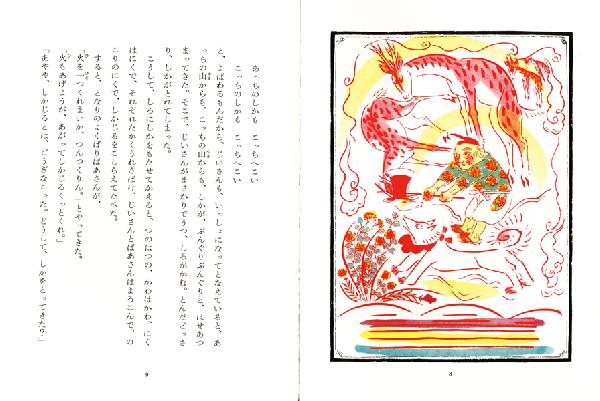 あっちのしかも　こっちへこい
こっちのしかも　こっちへこい
と、よばわるもんだから、じいさんも、いっしょになってとなえていると、あ
っちの山からも、こっちの山からも、しかが、ぶんぐりぶんぐりと、はせあつ
まってきた。そこで、じいさんがまさかりでうつ、しろがかむ。とんだどっさ
り、しかがとれてしまった。
こうして、しろにしかをもたせてかえると、つのはつの、かわはかわ、にく
はにくで、それぞれたかくうれさばけ、じいさんとばあさんはよろこんで、の
こりのにくで、しかじるをこしらえてたべた。
すると、となりのよくばりばあさんが、
「火を一つくれまいか、つんつくりん。」とやってきた。
「火もあげようが、あがってしかじるくっとくれ。」
「あやや、しかじるとは、どうぎなこった。どうして、しかをとってきた？」
9
8